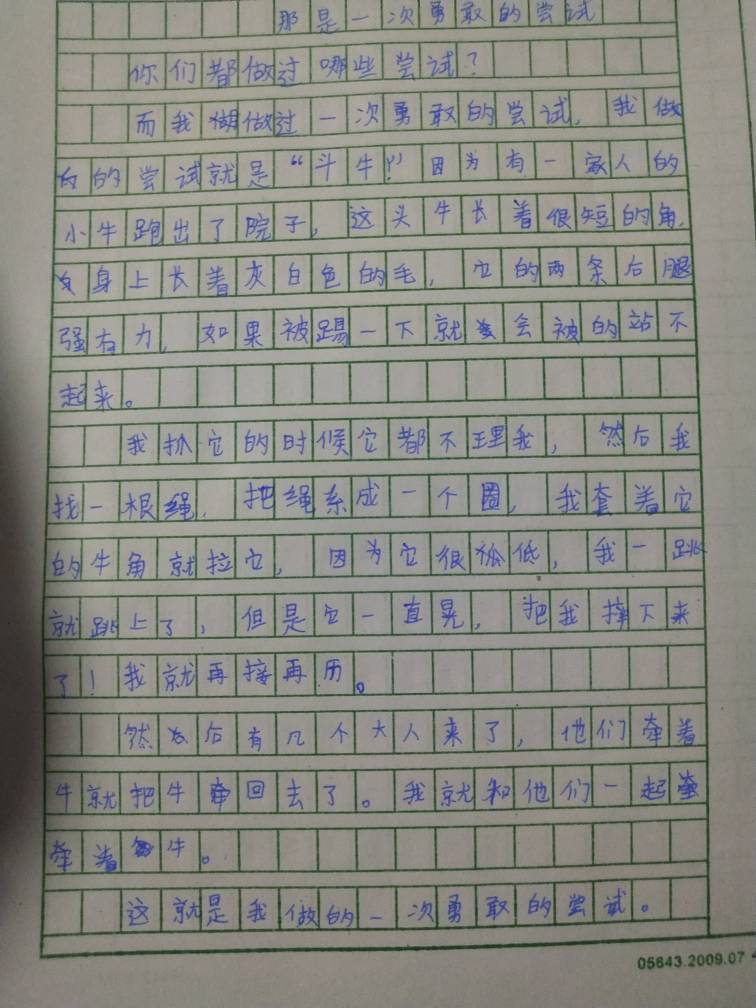 那是一次勇敢的尝试
你们都做过哪些尝试？
而我做过一次勇敢的尝试，我做
的尝试就是“斗牛！”因为有一家人的
小牛跑出了院子，这头牛长着很短的角，
身上长着灰白色的毛，它的两条后腿
强有力，如果被踢一下就会被的站不
起来。
我抓它的时候它都不理我，然后我
找一根绳，把绳系成一个圈，我套着它
的牛角就拉它，因为它很低，我一跳
就跳上了，但是它一直晃，把我摔下来
了！我就再接再历。
然后有几个大人来了，他们牵着
牛就把牛牵回去了。我就和他们一起
牵着牛。
这就是我做的一次勇敢的尝试。
05643.2009.07